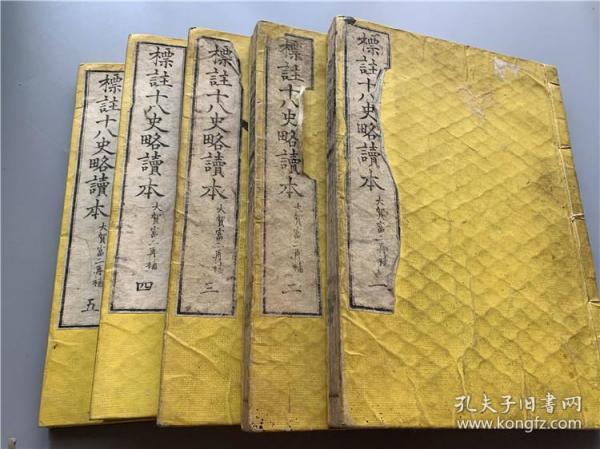 標註十八史略讀本 大賀富二再補 一
標註十八史略讀本 大賀富二再補 二
標註十八史略讀本 大賀富二再補 三
標註十八史略讀本 大賀富二再補 四
標註十八史略讀本 大賀富二再補 五
孔夫子旧书网
www.kongfz.com